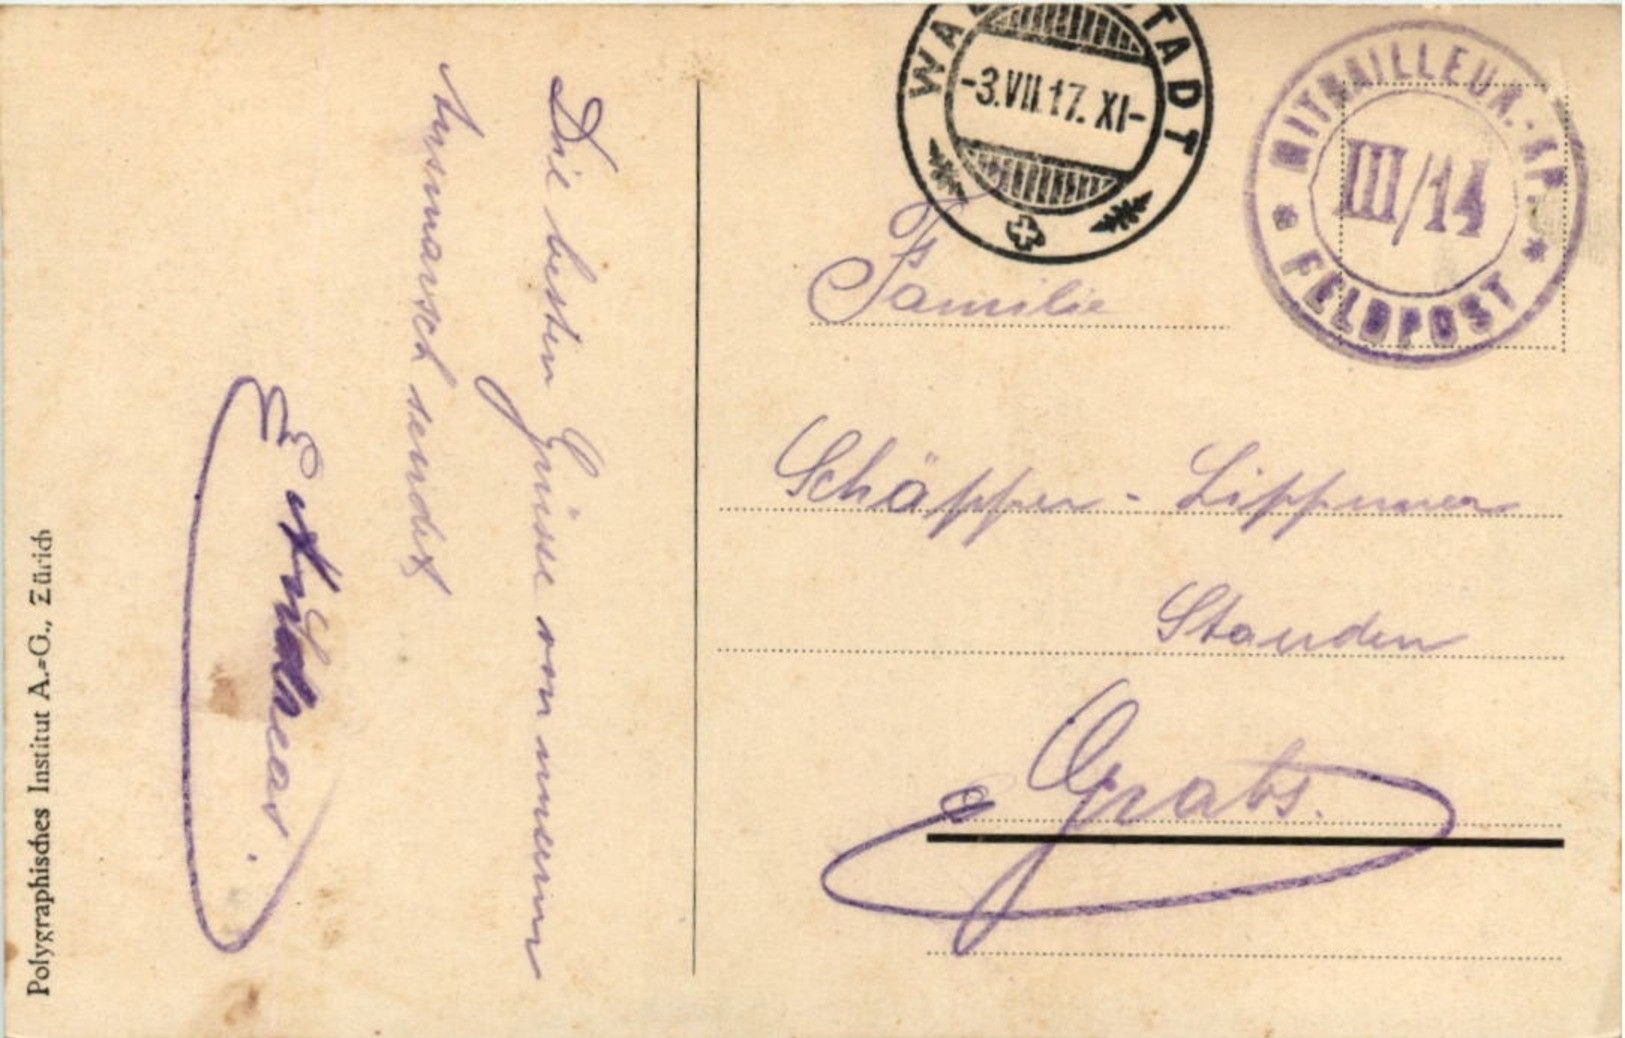 Die besten Grüsse von unserm
Ausmarsch sendet
Andreas.
WA STADT
-3.VII.17. XI-
MITRAILLEUR.-KP.
III/14
FELDPOST
Familie
Schäpper - Lippuner
Stauden
Grabs.
Polygraphisches Institut A.-G., Zürich